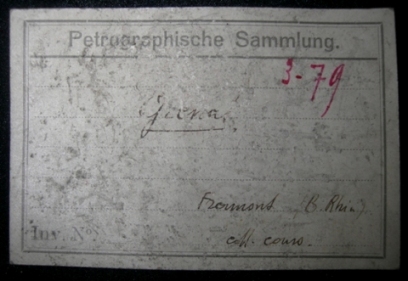 Petrographische Sammlung.
3-79
Framont (B. Rhin)
coll. cours.
Inv. No